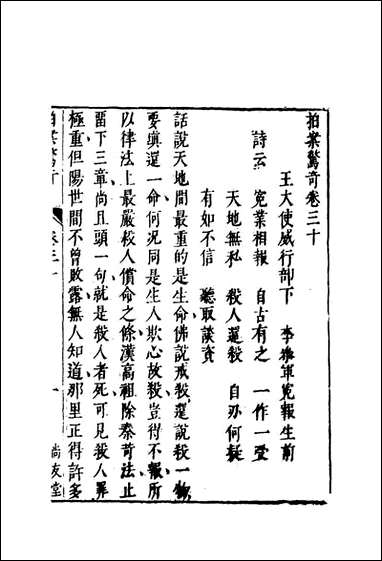 拍案驚奇卷三十
王大使威行部下　李參軍冤報生前
詩云　冤業相報　自古有之　一作一受
天地無私　殺人還殺　自刃何疑
有如不信　聽取談資
話說天地間最重的是生命佛說戒殺還說殺一物
要填還一命何況同是生人欺心故殺豈得不報所
以律法上最嚴殺人償命之條漢高祖除秦苛法止
留下三章尚且頭一句就是殺人者死可見殺人罪
極重但陽世間不曾敗露無人知道那里正得許多
拍案驚奇　卷三十　一　尚友堂